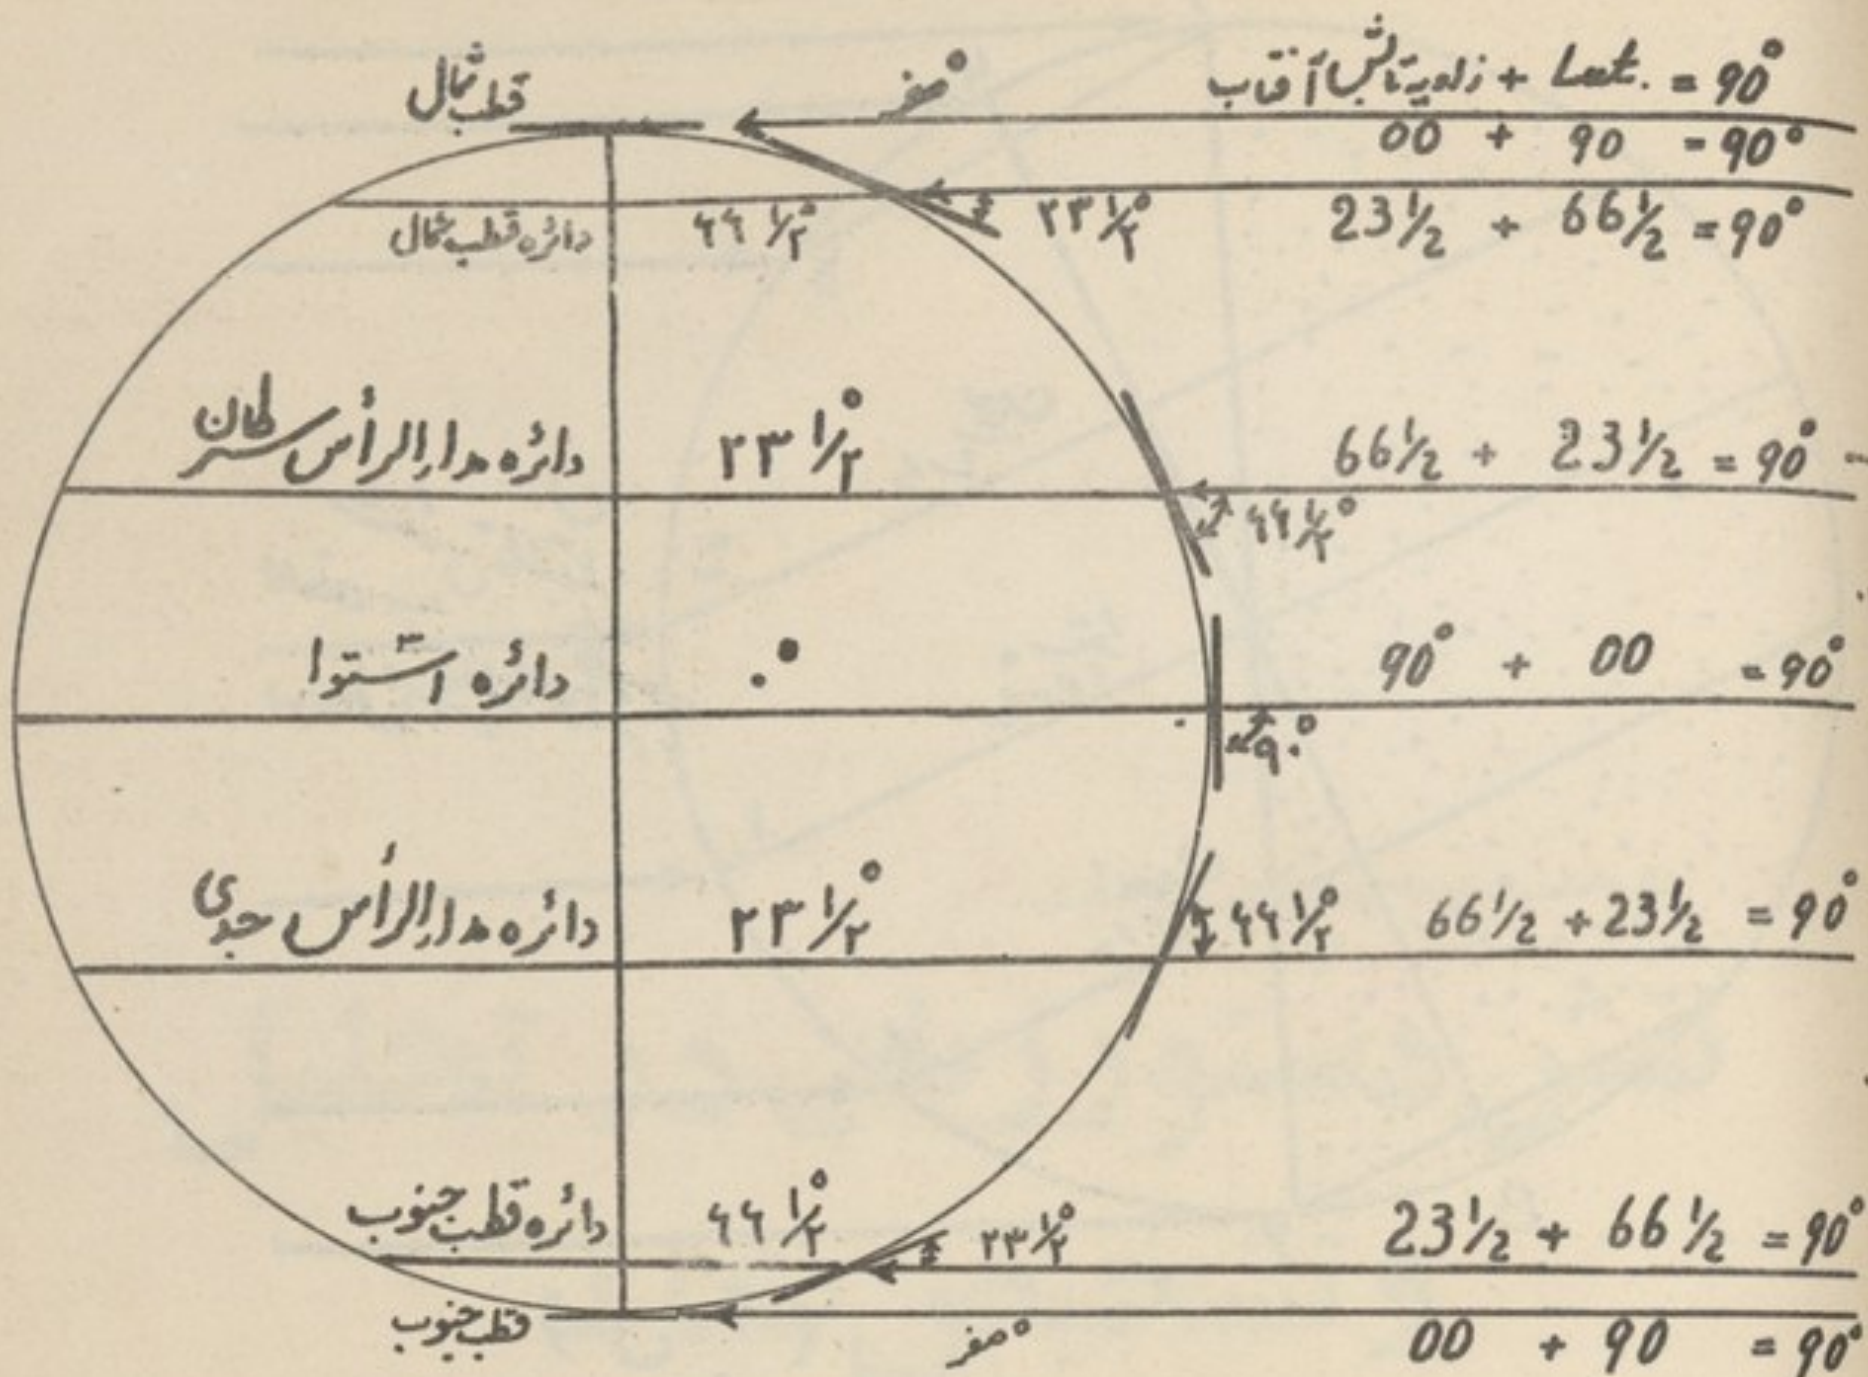 قطب شمال
صفر°
زاویه تابش آفتاب + Lat. = 90°
00 + 90 = 90°
دائره قطب شمال ۶۶ ۱/۲° ۲۳ ۱/۲° 23 1/2 + 66 1/2 = 90°
دائره مدار الرأس سرطان ۲۳ ۱/۲° 66 1/2 + 23 1/2 = 90°
۶۶ ۱/۲°
دائره استوا ۰° 90° + 00 = 90°
۹۰°
دائره مدار الرأس جدی ۲۳ ۱/۲° ۶۶ ۱/۲° 66 1/2 + 23 1/2 = 90°
دائره قطب جنوب ۶۶ ۱/۲° ۲۳ ۱/۲° 23 1/2 + 66 1/2 = 90°
قطب جنوب صفر° 00 + 90 = 90°